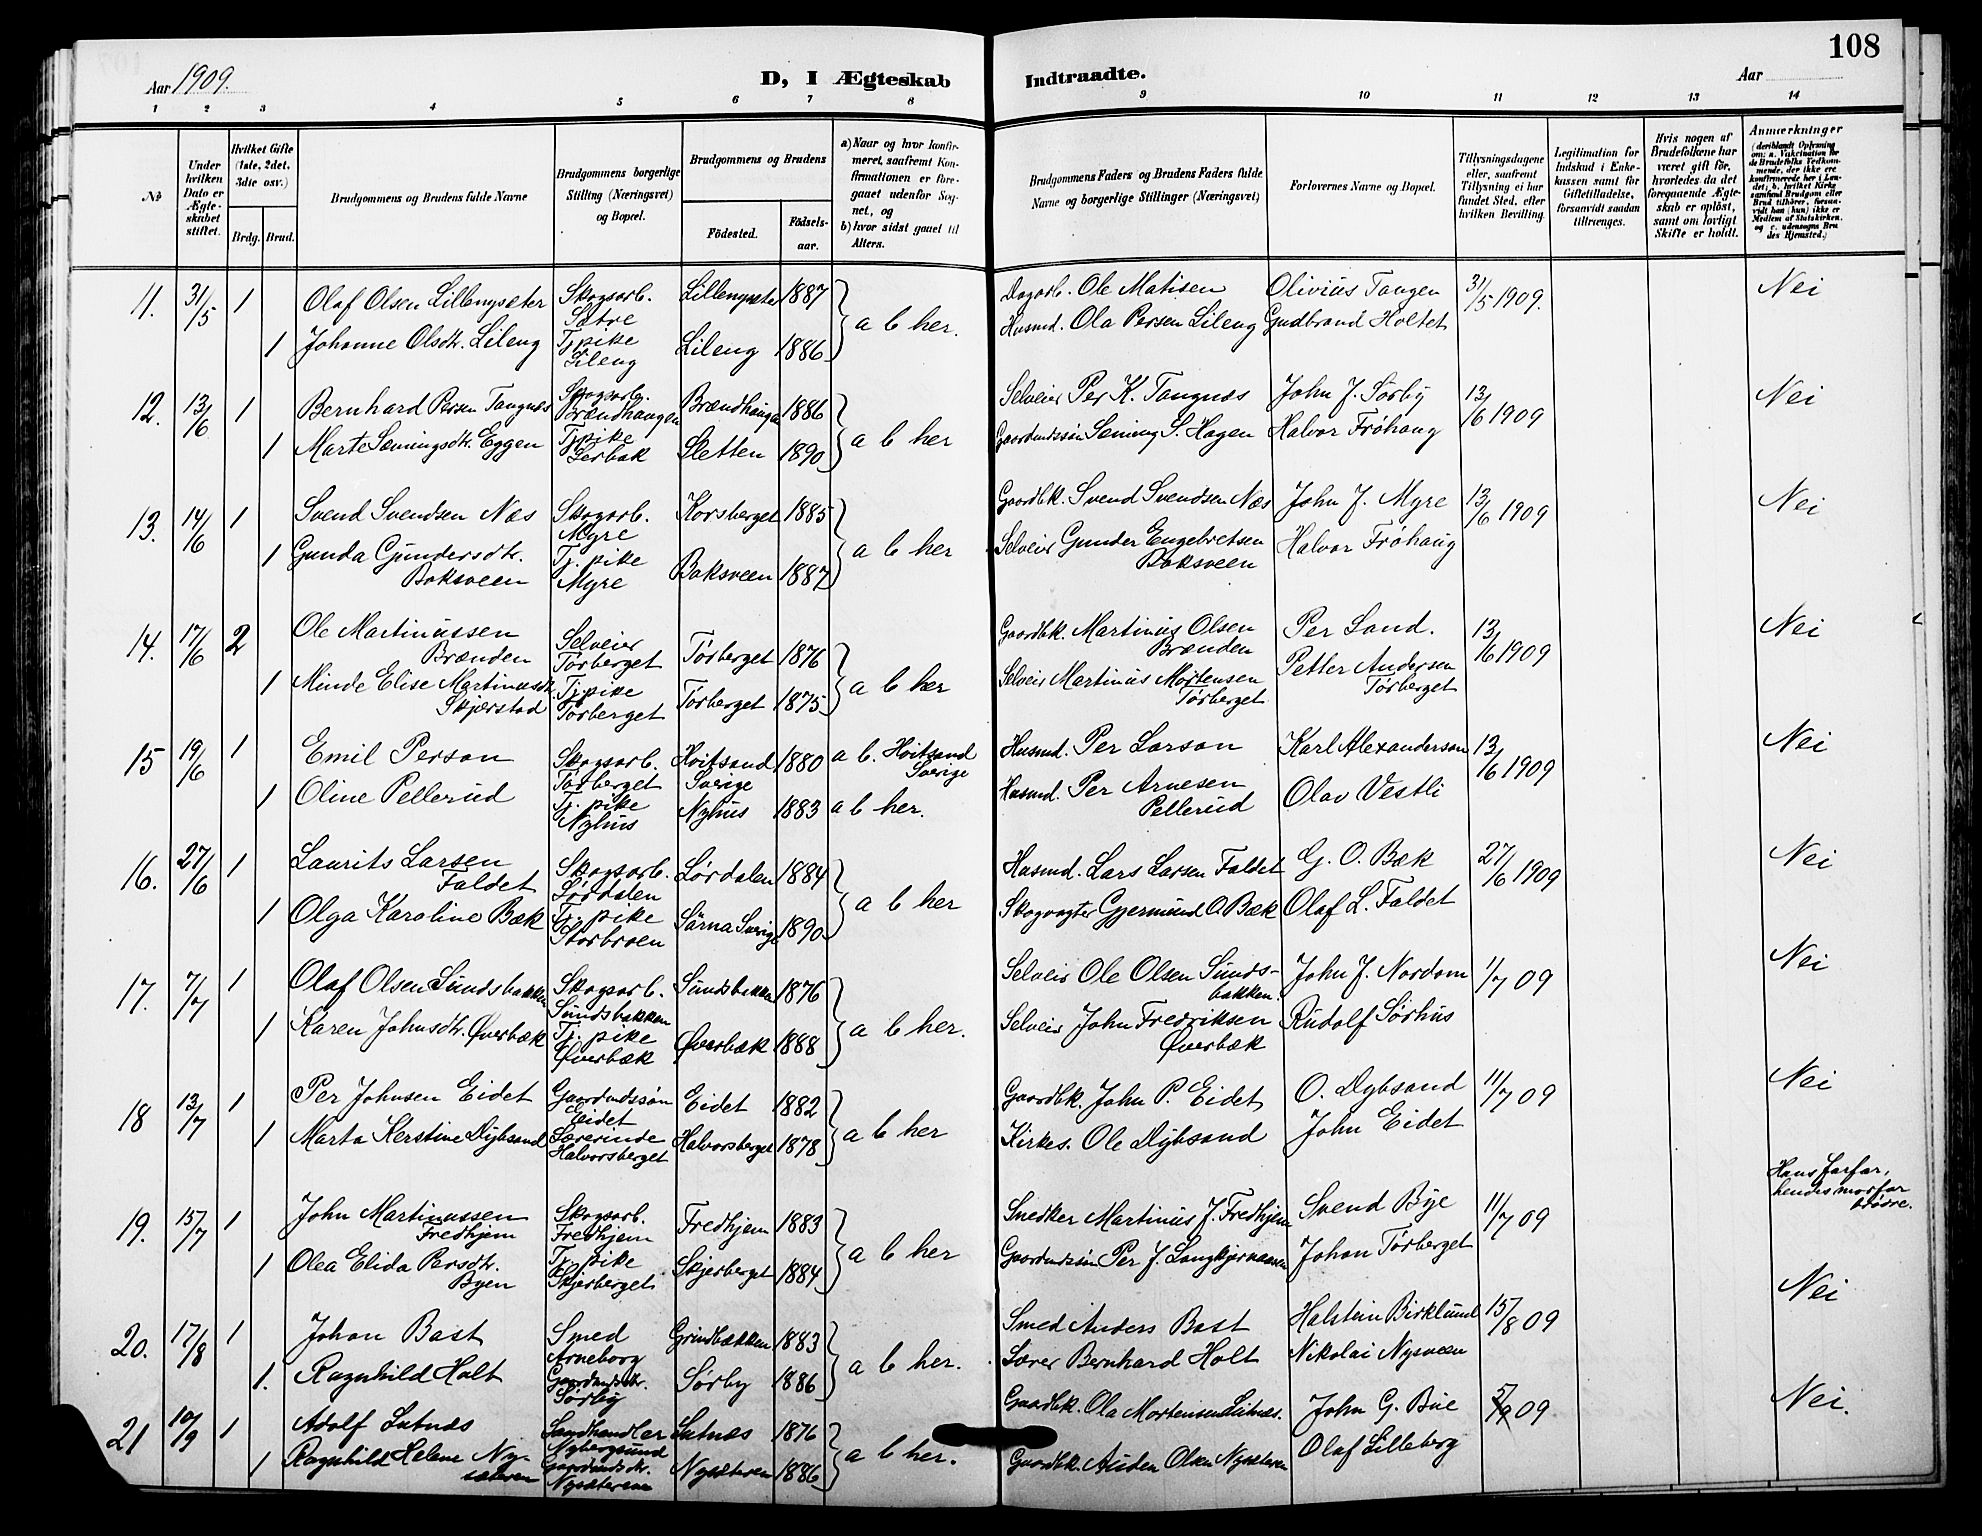 108
Aar 1909.
D, I Ægteskab Indtraadte.
Aar
1 2 3 4 5 6 7 8 9 10 11 12 13 14
No
Under hvilken Dato er Ægteskabet stiftet.
Hvilket Gifte (1ste, 2det, 3die osv.)
Brdg. Brud.
Brudgommens og Brudens fulde Navne
Brudgommens borgerlige Stilling (Næringsvei) og Bopæl.
Brudgommens og Brudens
Fødested.
Fødselsaar.
a) Naar og hvor konfirmeret, saafremt Konfirmationen er foregaaet udenfor Sognet, og
b) hvor sidst gaaet til Alters.
Brudgommens Faders og Brudens Faders fulde Navne og borgerlige Stillinger (Næringsvei)
Forlovernes Navne og Bopæl.
Tillysningsdagene eller, saafremt Tillysning ei har fundet Sted, efter hvilken Bevilling.
Legitimation for Indskud i Enkekassen samt for Giftetilladelse, forsaavidt saadan tiltrænges.
Hvis nogen af Brudefolkene har været gift før, hvorledes da det foregaaende Ægteskab er opløst, samt om lovligt Skifte er holdt.
Anmærkninger (deriblandt Oplysning om: a. Vakcination for de Brudefolks Vedkommende, der ikke ere konfirmerede her i Landet; b. hvilket Kirkesamfund Brudgom eller Brud tilhører, forsaavidt han (hun) ikke er Medlem af Statskirken, og c. udensogns Brudes Hjemsted.)
11. 31/5 1 Olaf Olsen Lillengsæter Skogsarb. Sætre Lillengsæter 1887 a b her. Dagarb. Ole Matisen Olivius Tangen 31/5 1909. Nei
1 Johanne Olsdtr. Lileng Tj.pike Lileng Lileng 1886 Husmd. Ola Persen Lileng Gudbrand Holtet
12. 13/6 1 Bernhard Persen Tangnæs Skogsarb. Brændhaugen Brændhaugen 1886 a b her Selveier Per K. Tangnæs John J. Sørby 13/6 1909 Nei
1 Marte Sæmingsdtr. Eggen Tj.pike Lerbak Sletten 1890 Gaardmdssøn Sæming S. Hagen Halvor Frøhaug
13. 14/6 1 Svend Svendsen Næs Skogsarb. Myre Korsberget 1885 a b her Gaardbk. Svend Svendsen Næs John J. Myre 13/6 1909 Nei
1 Gunda Gundersdtr. Boksveen Tj.pike Myre Boksveen 1887 Selveier Gunder Engebretsen Boksveen Halvor Frøhaug
14. 17/6 2 Ole Martinussen Brænden Selveier Tørberget Tørberget 1876 a b her Gaardbk. Martinus Olsen Brænden Per Sand. 13/6 1909 Nei
1 Minde Elise Martinusdtr. Skjærstad Tj.pike Tørberget Tørberget 1875 Selveier Martinus Mortensen Tørberget Petter Andersen Tørberget
15 19/6 1 Emil Person Skogsarb. Tørberget Hvitsand Sverige 1880 a b. Hvitsand Sverige Husmd. Per Larson Karl Alexanderson 13/6 1909 Nei
1 Oline Pellerud Tj.pike Nyhus Nyhus 1883 a b her. Husmd. Per Arnesen Pellerud Olav Vestli
16. 27/6 1 Laurits Larsen Faldet Skogsarb. Lørdalen Lørdalen 1884 a b her Husmd. Lars Larsen Faldet G. O. Bæk 27/6 1909 Nei
1 Olga Karoline Bæk Tj.pike Storbroen Särna Sverige 1890 Skogvogter Gjermund O. Bæk Olaf L. Faldet
17. 7/7 1 Olaf Olsen Sundsbakken Skogsarb. Sundsbakken Sundsbakken 1876 a b her. Selveier Ole Olsen Sundsbakken. John J. Nordom 1/7 09 Nei
1 Karen Johnsdtr. Øverbæk Tj.pike Øverbæk Øverbæk 1888 Selveier John Fredriksen Øverbæk Rudolf Sørhus
18 13/7 1 Per Johnsen Eidet Gaardmdssøn Eidet Eidet 1882 a b her Gaardbk. John P. Eidet O. Dybsand 11/7 09 Nei
1 Marta Kerstine Dybsand Lærerinde Halvorsberget Halvorsberget 1878 Kirkes. Ole Dybsand John Eidet
19. 15/7 1 John Martinussen Fredhjem Skogsarb. Fredhjem Fredhjem 1883 a b her Snedker Martinus J. Fredhjem Svend Bye 11/7 09 Hans farfar, hendes morfar brødre.
1 Olea Elida Persdtr. Byen Tj.pike Skjerberget Skjerberget 1884 Gaardmdssøn Per J. Langkjernaasen Johan Tørberget
20. 17/8 1 Johan Bast Smed Arneborg Grindbækken 1883 a b her. Smed Anders Bast Halstein Birklund 15/8 09 Nei
1. Ragnhild Holt Gaardmdsdtr. Sørby Sørby 1886 Lærer Bernhard Holt Nikolai Nysveen
21 10/9 1 Adolf Lutnæs Landhandler Nybergsund Lutnæs 1876 a b her. Gaardbk. Ola Mortensen Lutnæs. John G. Bue 5/9 09 Nei.
1 Ragnhild Helene Nysæteren Gaardmdsdtr. Nysæterene Nysæteren 1886 Gaardbk. Auden Olsen Nysæteren Olaf Lilleberg